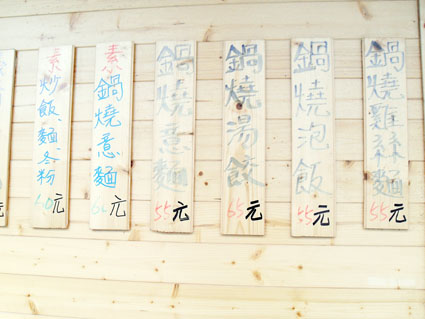 鍋燒雞絲麵 55元
鍋燒泡飯 55元
鍋燒湯餃 65元
鍋燒意麵 55元
素鍋燒意麵 60元
素炒飯、麵、冬粉 60元